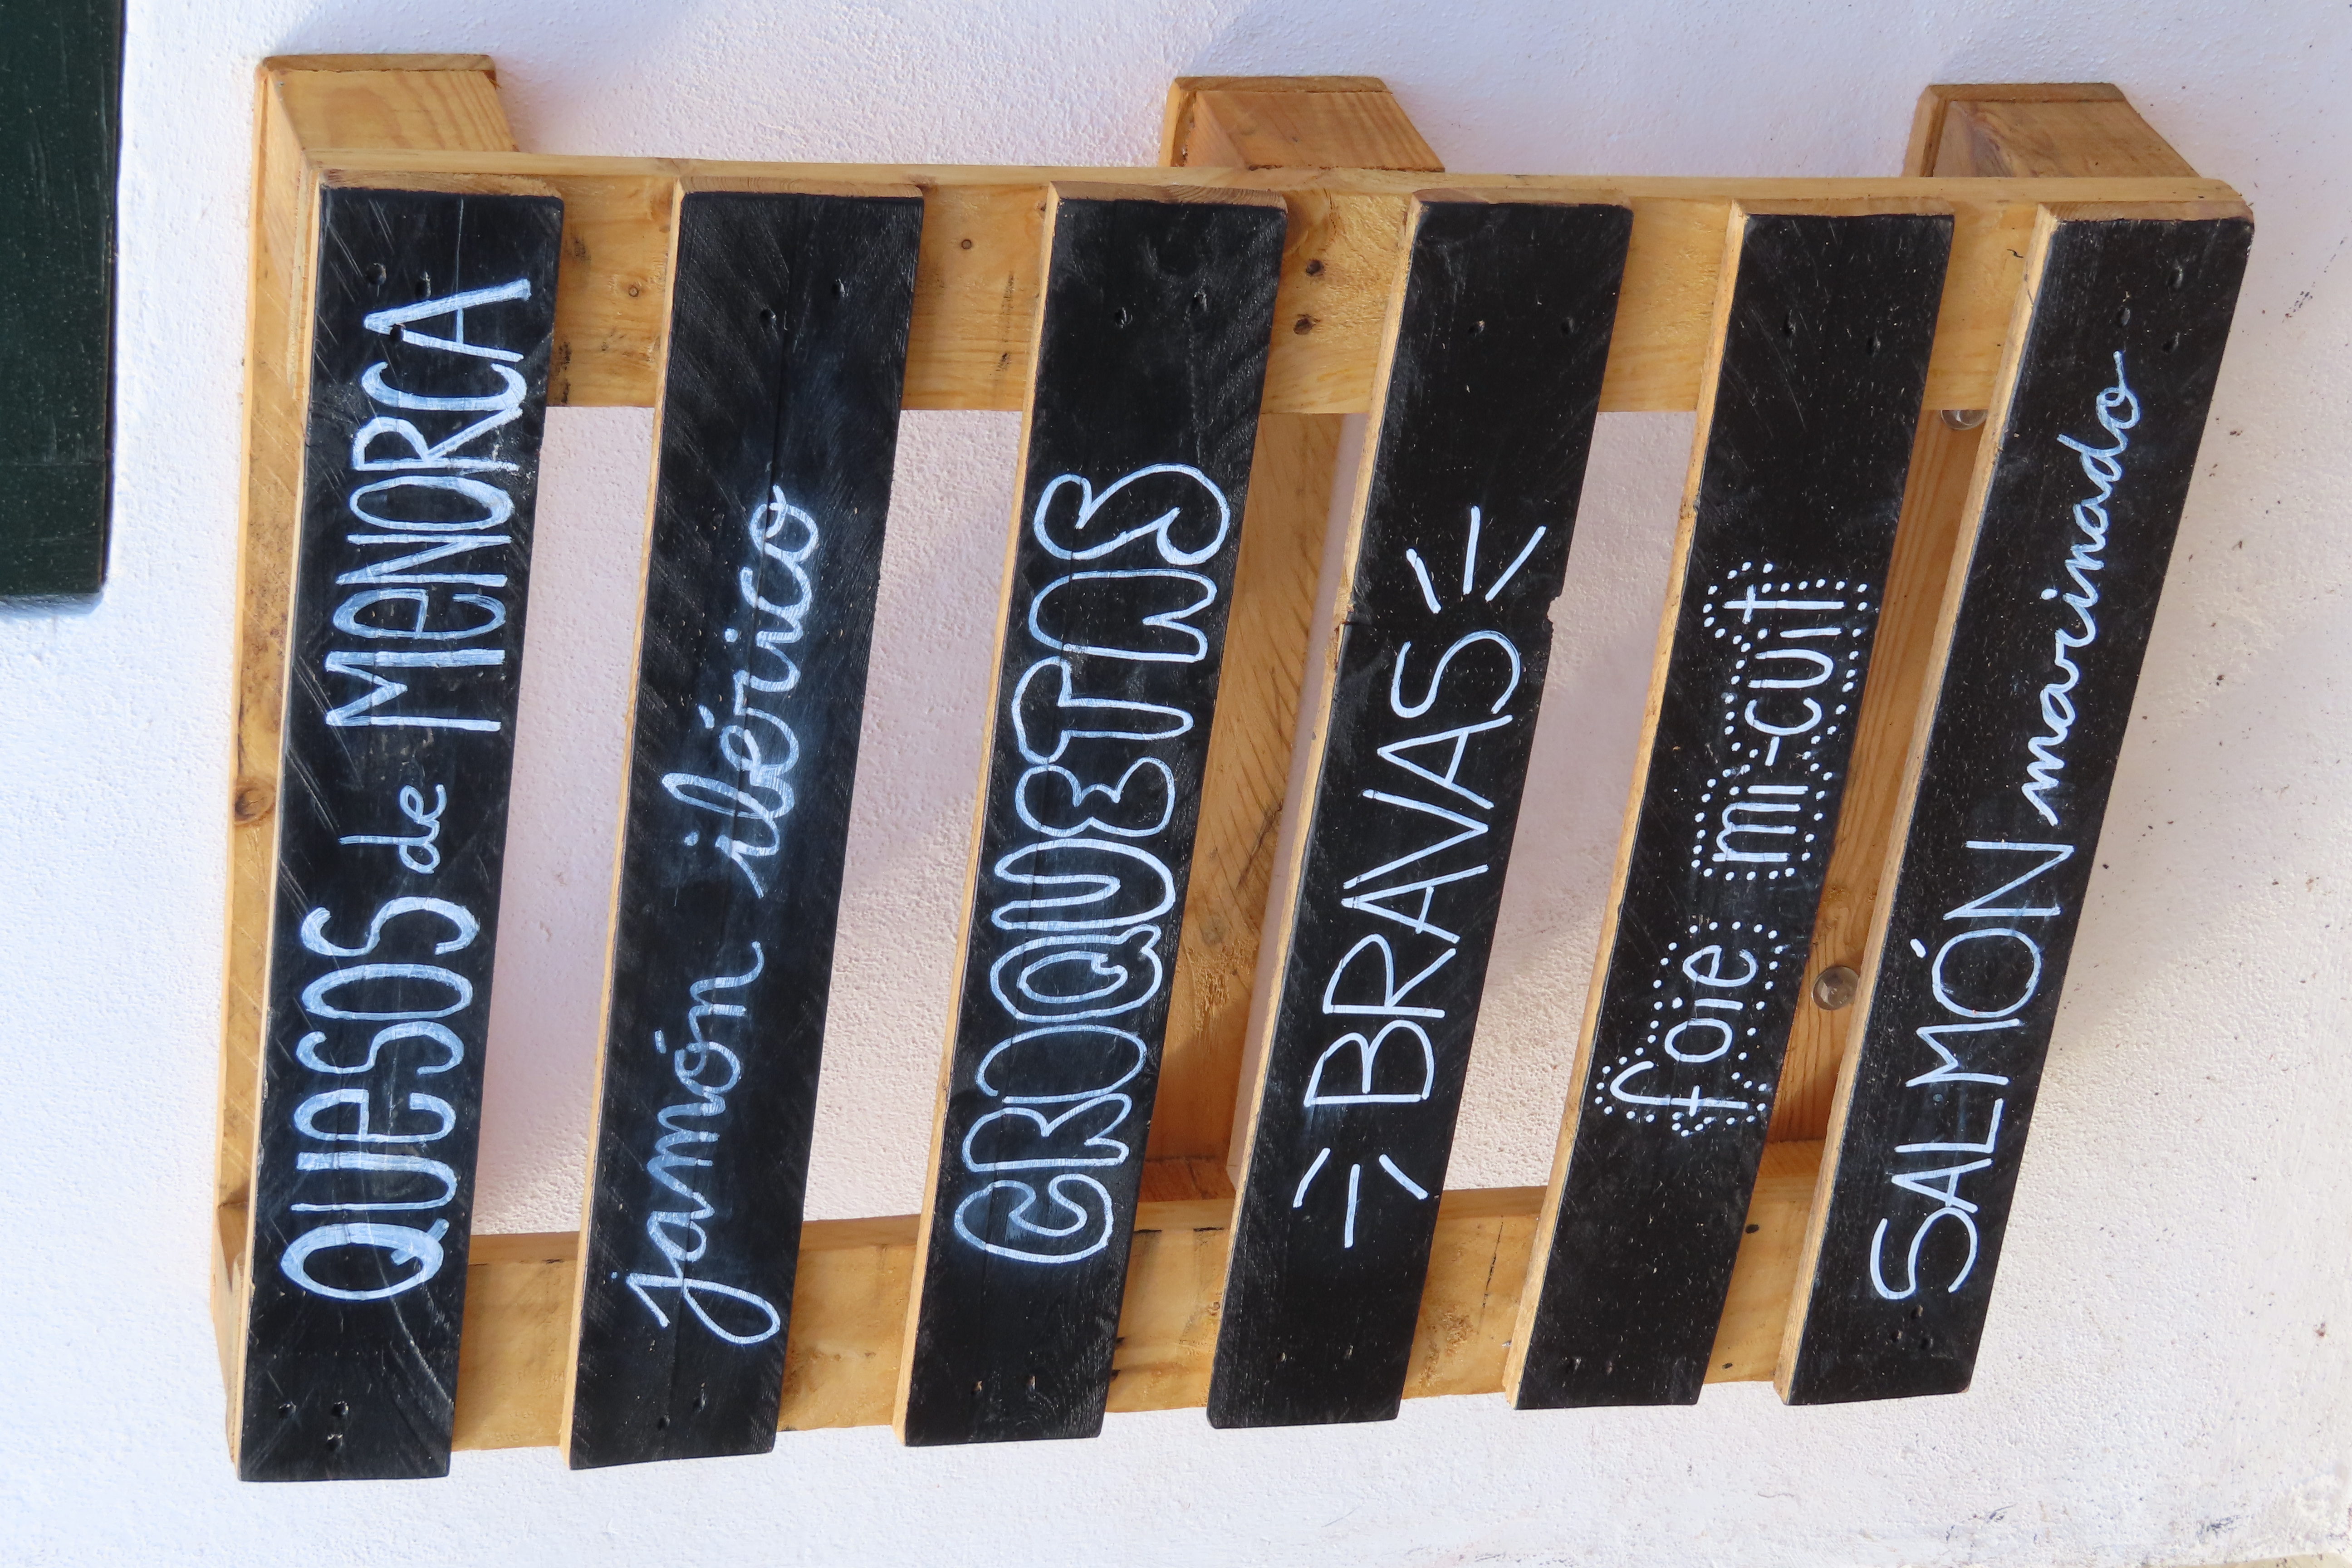 QUESOS de MENORCA
jamón ibérico
CROQUETAS
BRAVAS
foie mi-cuit
SALMÓN marinado